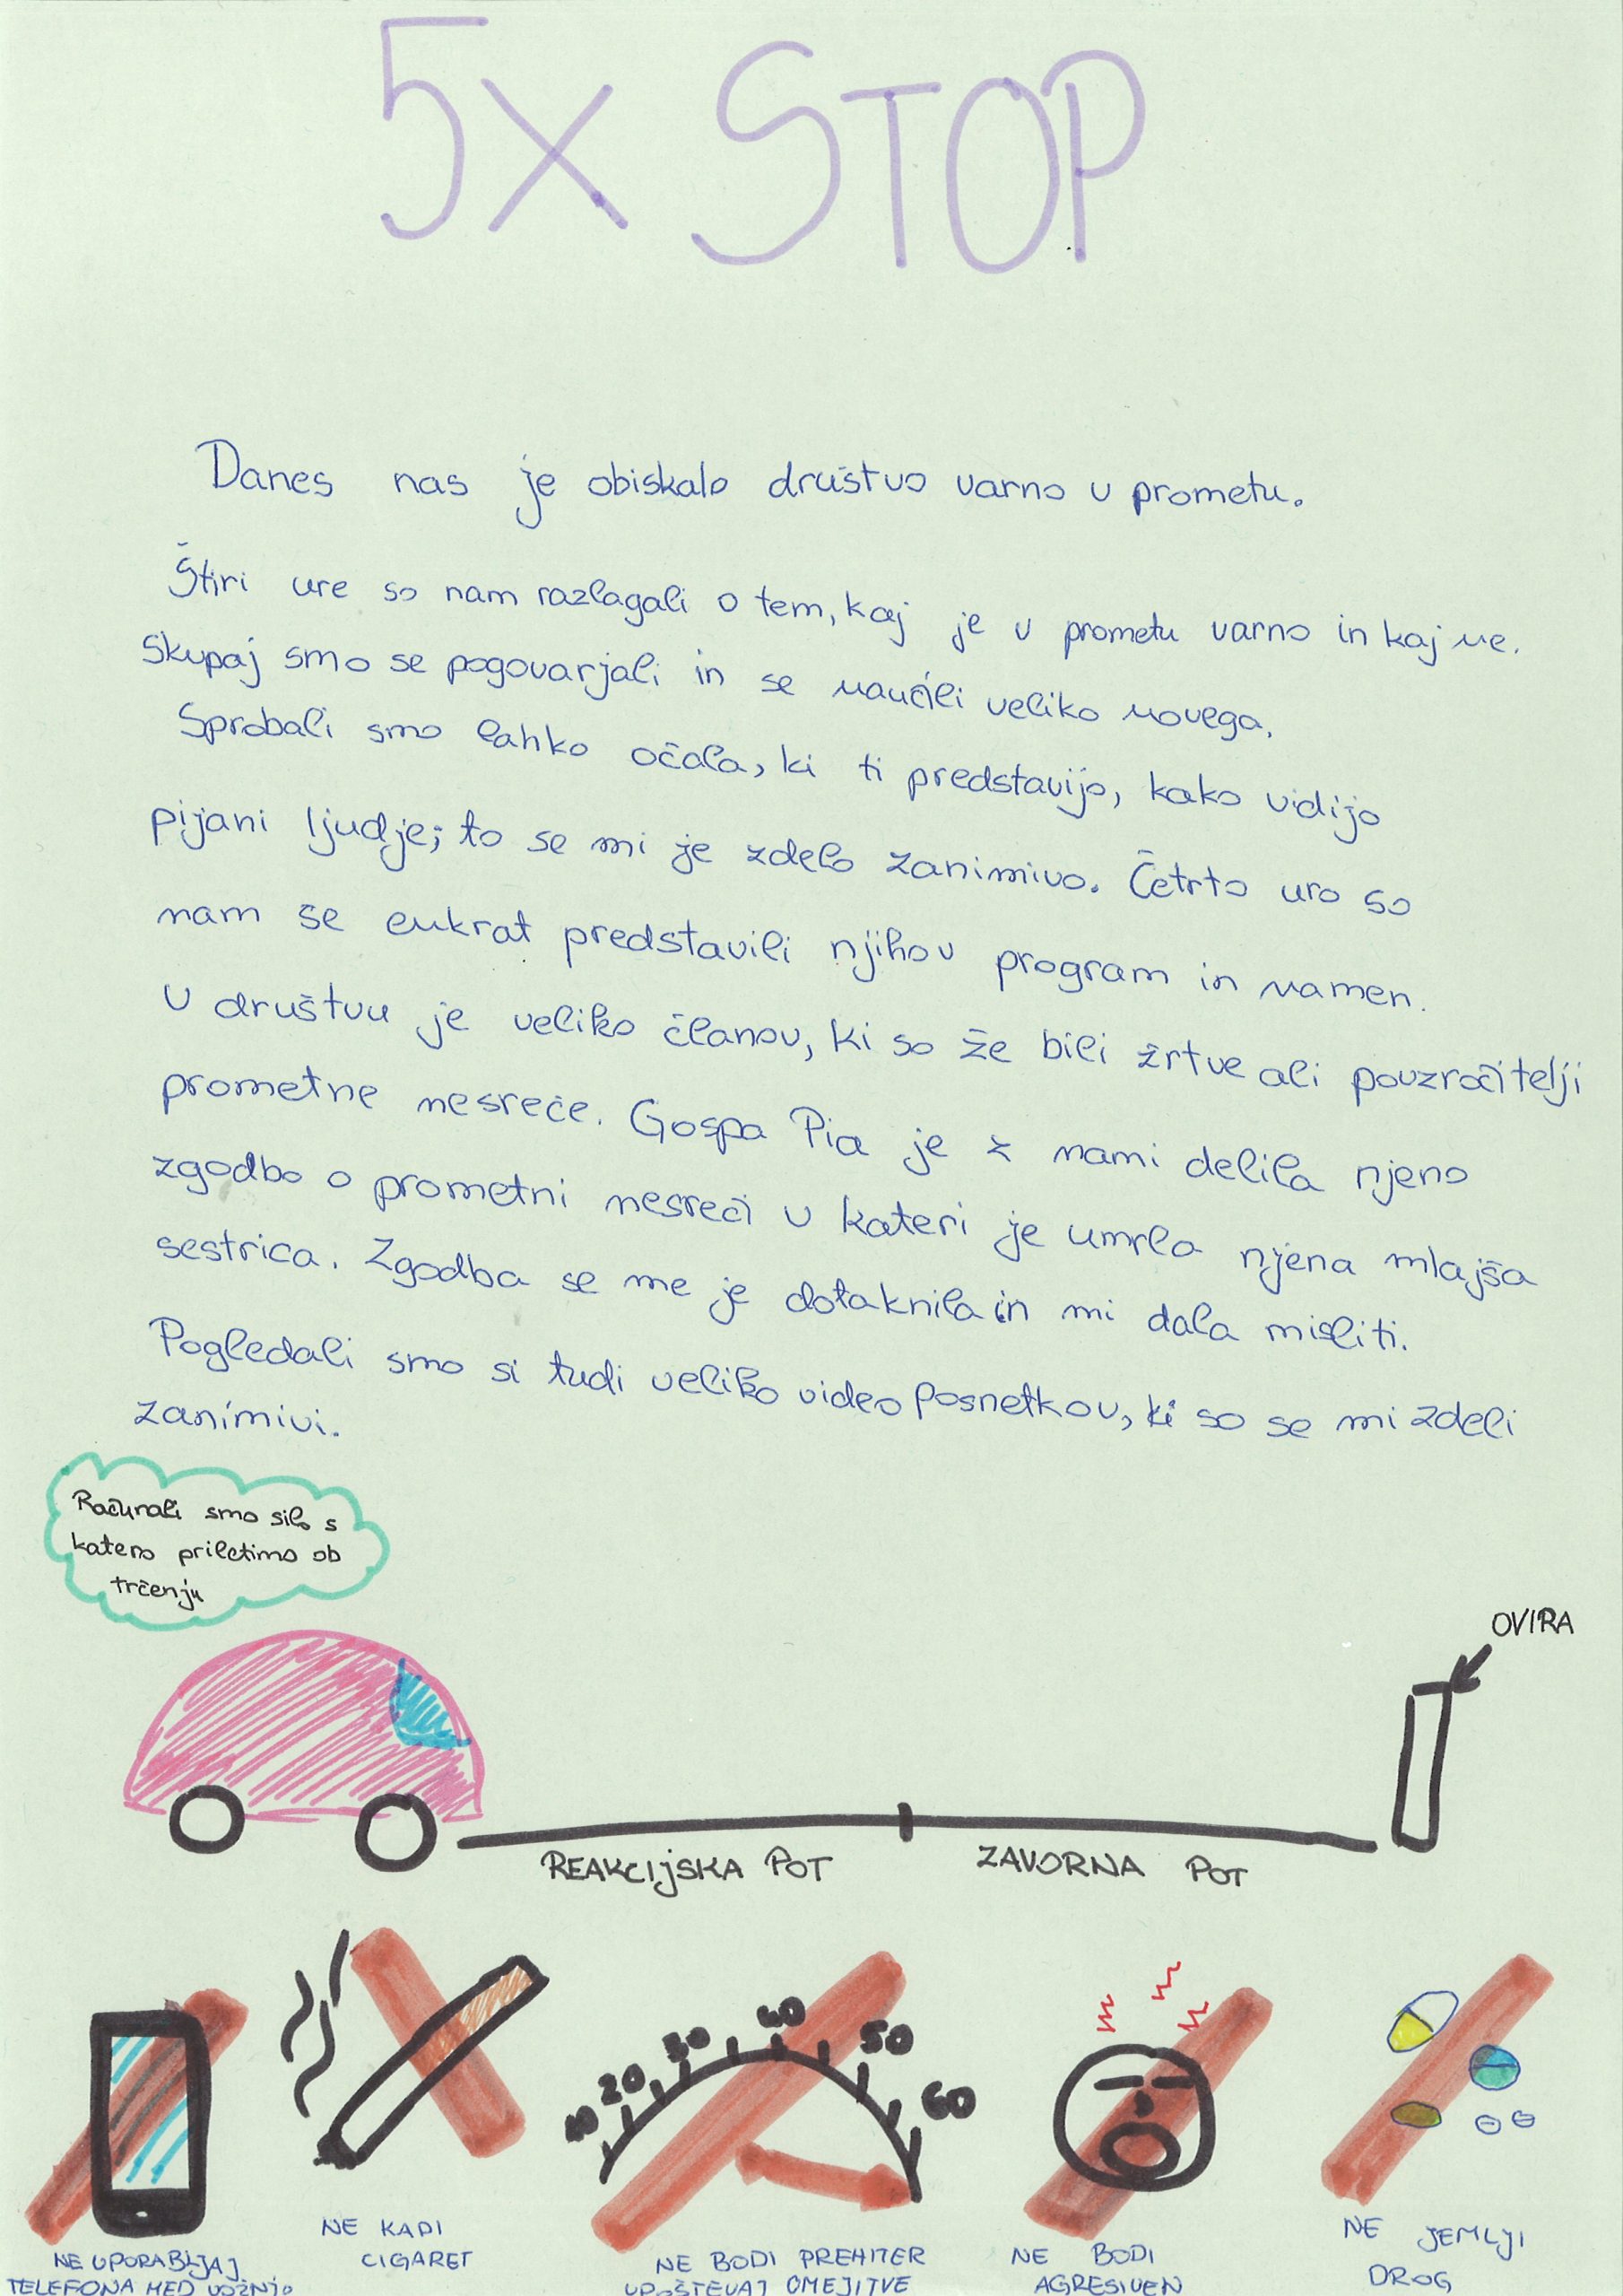 5X STOP
Danes nas je obiskalo društvo varno v prometu.
Štiri ure so nam razlagali o tem, kaj je v prometu varno in kaj ne.
Skupaj smo se pogovarjali in se naučili veliko novega.
Sprobali smo lahko očala, ki ti predstavijo, kako vidijo
pijani ljudje; to se mi je zdelo zanimivo. Četrto uro so
nam še enkrat predstavili njihov program in namen.
V društvu je veliko članov, ki so že bili žrtve ali povzročitelji
prometne nesreče. Gospa Pia je z nami delila njeno
zgodbo o prometni nesreči v kateri je umrla njena mlajša
sestrica. Zgodba se me je dotaknila in mi dala misliti.
Pogledali smo si tudi veliko video posnetkov, ki so se mi zdeli
zanimivi.
Računali smo silo s
katero priletimo ob
trčenju
OVIRA
REAKCIJSKA POT
ZAVORNA POT
10 20 30 40 50 60
NE UPORABLJAJ
TELEFONA MED VOŽNJO
NE KADI
CIGARET
NE BODI PREHITER
UPOŠTEVAJ OMEJITVE
NE BODI
AGRESIVEN
NE JEMLJI
DROG